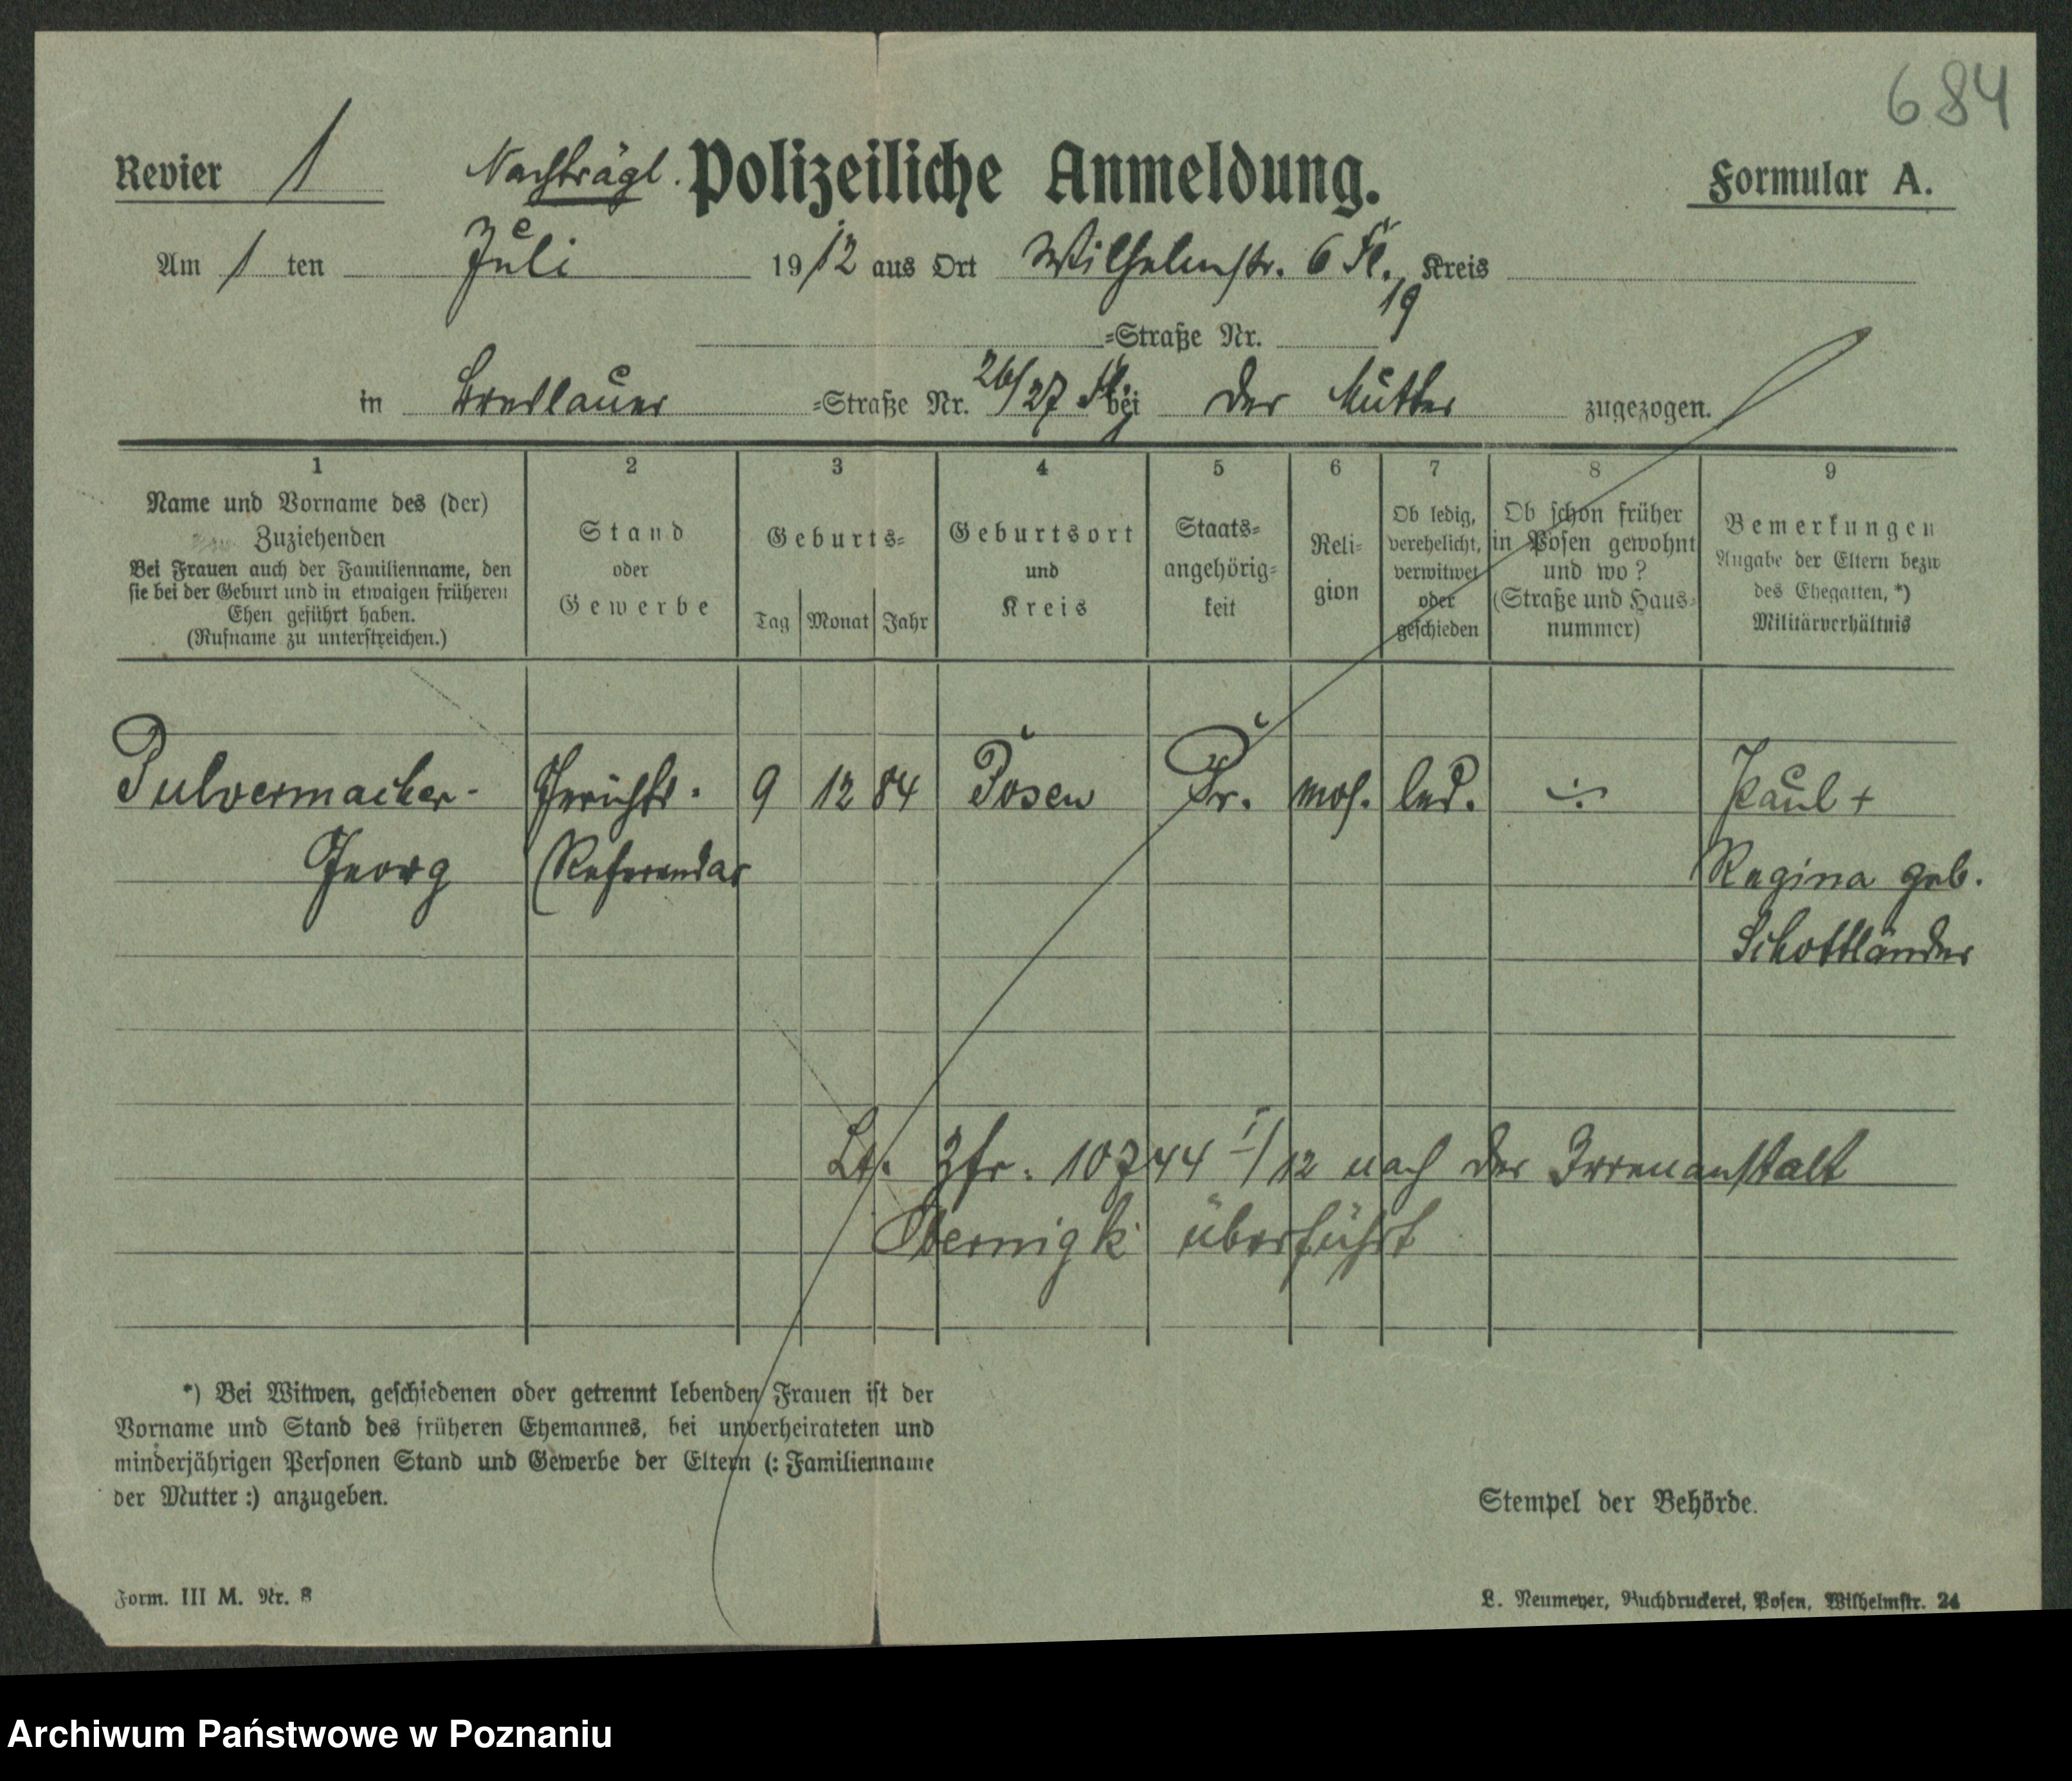 684
Revier 1 Nachträgl. Polizeiliche Anmeldung. Formular A.
Am 1 ten Juli 1912 aus Ort Wilhelmstr. 6 Kreis
19
=Straße Nr.
in Breslauer =Straße Nr. 26/27 bei der Mutter zugezogen.
1 2 3 4 5 6 7 8 9
Name und Vorname des (der)
Zuziehenden
Bei Frauen auch der Familienname, den
sie bei der Geburt und in etwaigen früheren
Ehen geführt haben.
(Rufname zu unterstreichen.)
Stand
oder
Gewerbe
Geburts=
Tag Monat Jahr
Geburtsort
und
Kreis
Staats=
angehörig=
keit
Reli=
gion
Ob ledig,
verehelicht,
verwitwet
oder
geschieden
Ob schon früher
in Posen gewohnt
und wo?
(Straße und Haus=
nummer)
Bemerkungen
Angabe der Eltern bezw
des Ehegatten, *)
Militärverhältnis
Pulvermacher- Gerichts- 9 12 84 Posen Pr. mos. led. Paul +
Georg Referendar Regina geb.
Schottländer
Lt. Zfr. 10744 I/12 nach der Irrenanstalt
Obernigk überführt
*) Bei Witwen, geschiedenen oder getrennt lebenden Frauen ist der
Vorname und Stand des früheren Ehemannes, bei unverheirateten und
minderjährigen Personen Stand und Gewerbe der Eltern (: Familienname
der Mutter :) anzugeben.
Stempel der Behörde.
Form. III M. Nr. 8
L. Neumeyer, Buchdruckerei, Posen, Wilhelmstr. 24
Archiwum Państwowe w Poznaniu